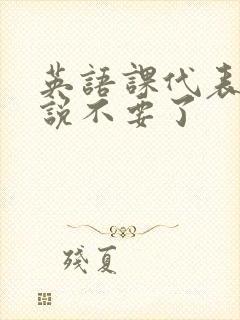 英語課代表
說不要了
殘夏